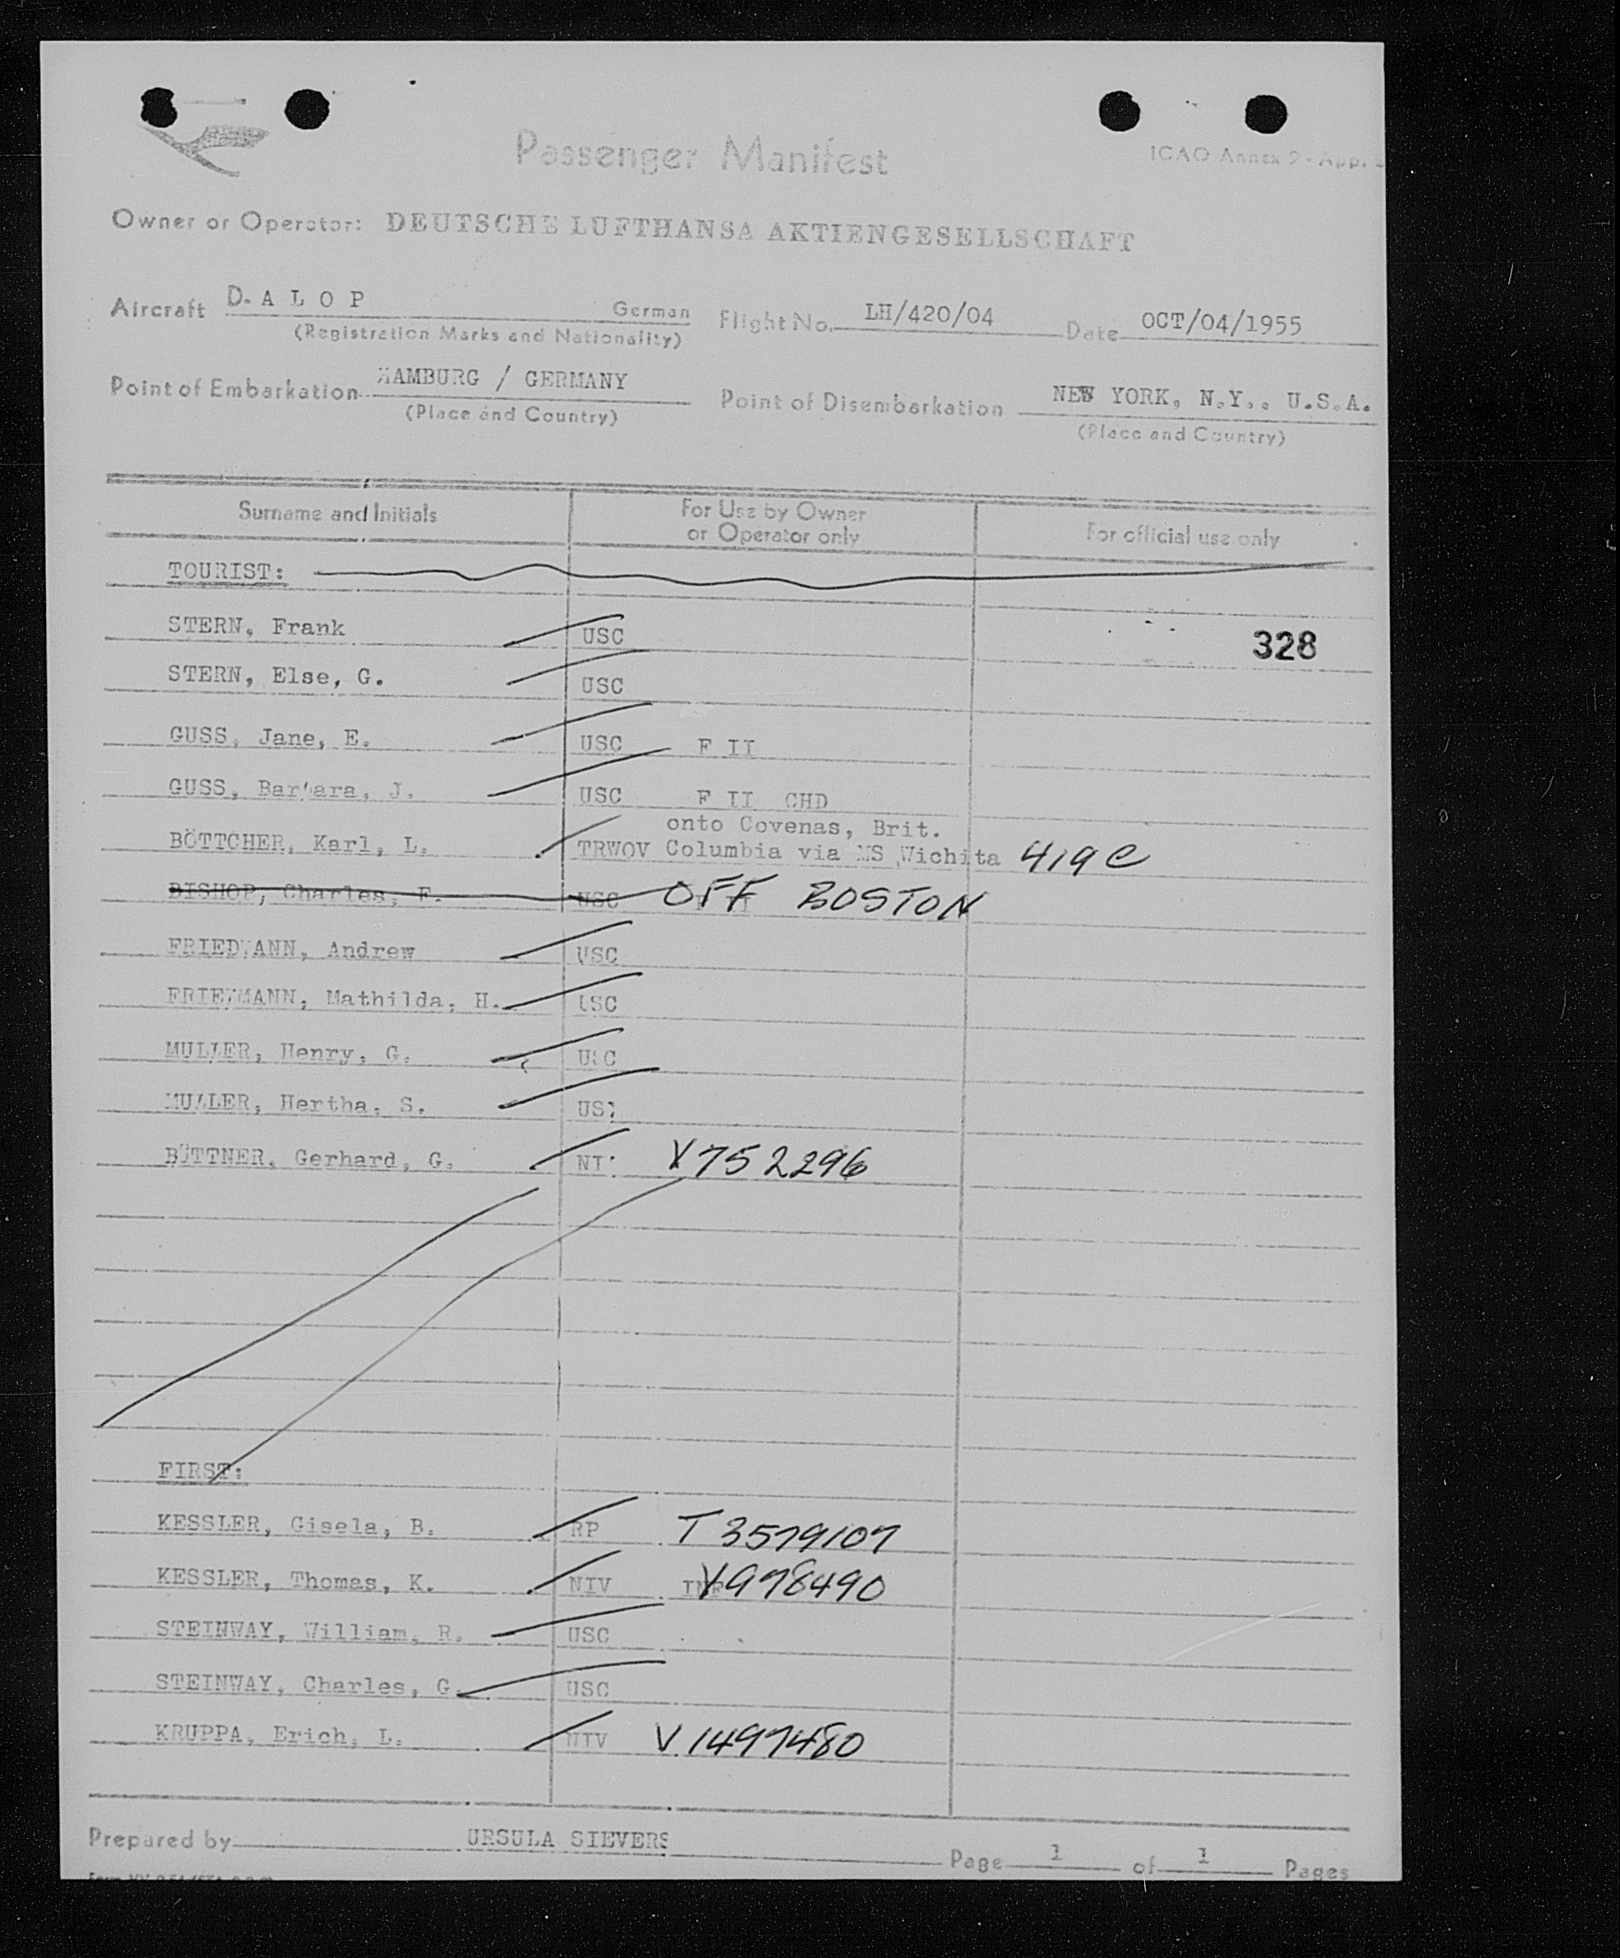 Passenger Manifest
ICAO Annex 9 - App.
Owner or Operator: DEUTSCHE LUFTHANSA AKTIENGESELLSCHAFT
Aircraft D-A L O P German Flight No. LH/420/04 Date OCT/04/1955
(Registration Marks and Nationality)
Point of Embarkation HAMBURG / GERMANY Point of Disembarkation NEW YORK, N.Y., U.S.A.
(Place and Country) (Place and Country)
Surname and Initials For Use by Owner or Operator only For official use only
TOURIST:
STERN, Frank USC 328
STERN, Else, G. USC
GUSS, Jane, E. USC F II
GUSS, Barbara, J. USC F II CHD
onto Covenas, Brit.
BÖTTCHER, Karl, L. TRWOV Columbia via MS Wichita 419C
BISHOP, Charles, F. USC OFF BOSTON
FRIEDMANN, Andrew USC
FRIEDMANN, Mathilda, H. USC
MULLER, Henry, G. USC
MULLER, Hertha, S. USC
BÜTTNER, Gerhard, G. NI V752296
FIRST:
KESSLER, Gisela, B. RP T3579107
KESSLER, Thomas, K. NIV INF V978490
STEINWAY, William, R. USC
STEINWAY, Charles, G. USC
KRUPPA, Erich, L. NIV V1497480
Prepared by URSULA SIEVERS
Page 1 of 1 Pages